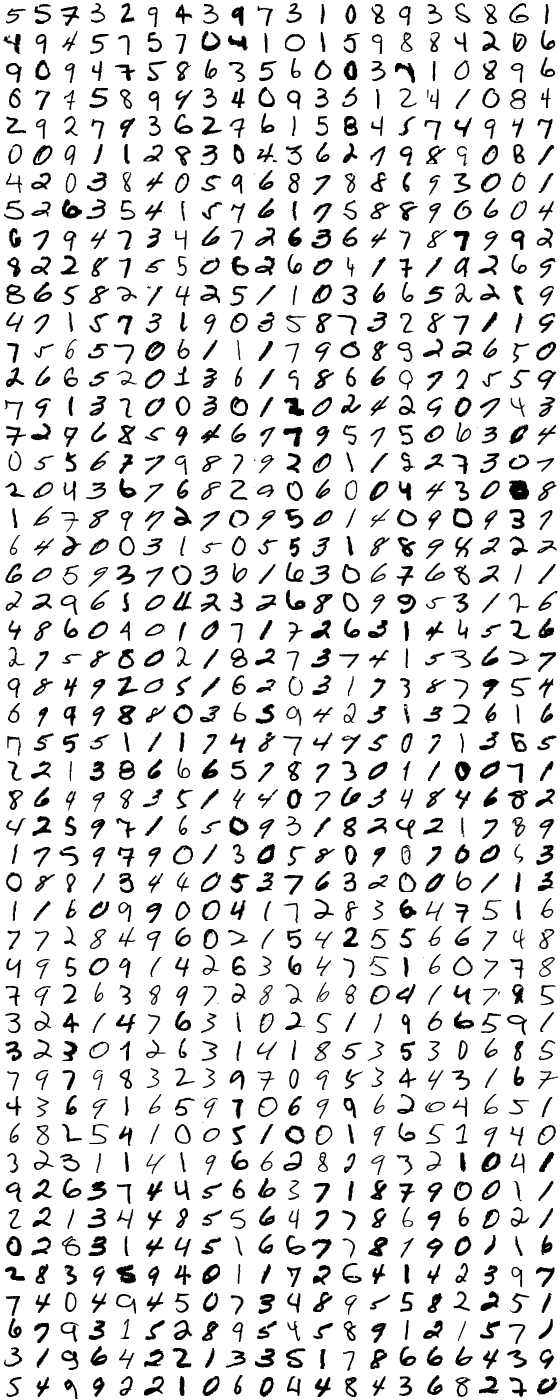 5 5 7 3 2 9 4 3 9 7 3 1 0 8 9 3 5 8 6 1
4 9 4 5 7 5 7 0 4 1 0 1 5 9 8 8 4 2 0 6
9 0 9 4 7 5 8 6 3 5 6 0 0 3 7 1 0 8 9 6
6 7 7 5 8 9 9 3 4 0 9 3 5 1 2 4 1 0 8 4
2 9 2 7 9 3 6 2 7 6 1 5 8 4 5 7 4 9 4 7
0 0 9 1 1 2 8 3 0 4 3 6 2 7 9 8 9 0 8 1
4 2 0 3 8 4 0 5 9 6 8 7 8 8 6 9 3 0 0 1
5 2 6 3 5 4 1 5 7 6 1 7 5 8 8 9 0 6 0 4
6 7 9 4 7 3 4 6 7 2 6 3 6 4 7 8 7 9 9 2
8 2 2 8 7 5 5 0 6 2 6 0 4 1 7 1 9 2 6 5
8 6 5 8 2 7 4 2 5 1 1 0 3 6 6 5 2 2 1 9
4 7 1 5 7 3 1 9 0 3 5 8 7 3 2 8 7 1 1 8
7 5 6 5 7 0 6 1 1 1 7 9 0 8 9 2 2 6 5 0
2 6 6 5 2 0 1 3 6 1 9 8 6 6 9 7 2 5 5 9
7 9 1 3 7 0 0 3 0 1 2 0 2 4 2 9 0 7 4 3
7 2 7 6 8 5 9 4 6 7 7 9 5 7 5 0 6 3 0 4
0 5 5 6 7 7 9 8 7 9 2 0 1 1 8 2 7 3 0 7
2 0 4 3 6 7 6 8 2 9 0 6 0 0 4 4 3 0 8
1 6 7 8 9 7 2 7 0 9 5 0 1 4 0 9 0 9 3 7
6 4 2 0 0 3 1 5 0 5 5 3 1 8 8 9 4 2 2 2
6 0 5 9 3 7 0 3 6 1 6 3 0 6 7 6 8 2 1 1
2 2 9 6 5 0 4 2 3 2 6 8 0 9 9 5 3 1 2 6
4 8 6 0 4 0 1 0 7 1 7 2 6 3 1 4 4 5 2 6
2 7 5 8 8 0 2 1 8 2 7 3 7 4 1 5 3 6 2 7
9 8 4 9 2 0 5 1 6 2 0 3 1 7 3 8 7 9 5 4
6 9 9 9 8 8 0 3 6 5 9 4 2 3 1 3 2 6 1 6
7 5 5 5 1 1 1 7 4 8 7 4 9 5 0 7 1 3 6 5
2 2 1 3 8 6 6 6 5 7 8 7 3 0 1 1 0 0 7 1
8 6 4 9 8 3 5 1 4 4 0 7 6 3 4 8 4 6 8 2
4 2 5 9 7 1 6 5 0 9 3 1 8 2 4 2 1 7 8 9
1 7 5 9 7 9 0 1 3 0 5 8 0 9 0 7 0 0 5 3
0 8 8 1 3 4 4 0 5 3 7 6 3 2 0 0 6 1 1 3
1 1 6 0 9 9 0 0 4 1 7 2 8 3 6 4 7 5 1 6
7 7 2 8 4 9 6 0 2 1 5 4 2 5 5 6 6 7 4 8
4 9 5 0 9 1 4 2 6 3 6 4 7 5 1 6 0 7 7 8
7 9 2 6 3 8 9 7 2 8 2 6 8 0 4 1 4 7 8 5
3 2 4 1 4 7 6 3 1 0 2 5 1 1 9 6 6 5 9 1
3 2 3 0 1 2 6 3 1 4 1 8 5 3 5 3 0 6 8 5
7 9 7 9 8 3 2 3 9 7 0 9 5 3 4 4 3 1 6 7
4 3 6 9 1 6 5 9 7 0 6 9 9 6 2 0 4 6 5 1
6 8 2 5 4 1 0 0 5 1 0 0 1 9 6 5 1 9 4 0
3 2 3 1 1 4 1 9 6 6 2 8 2 9 3 2 1 0 4 1
9 2 6 3 7 4 4 5 6 6 3 7 1 8 7 9 0 0 1 1
2 2 1 3 4 4 8 5 5 6 4 7 7 8 6 9 6 0 2 1
0 2 8 3 1 4 4 5 1 6 6 7 7 8 7 9 0 1 1 6
2 8 3 9 5 9 4 0 1 1 7 2 6 4 1 4 2 3 9 7
7 4 0 4 9 4 5 0 7 3 4 8 9 5 5 8 2 2 5 1
6 7 9 3 1 5 2 8 9 5 4 5 8 9 1 2 1 5 7 1
3 1 9 6 4 2 2 1 3 3 5 1 7 8 6 6 6 4 3 9
5 4 9 9 2 2 1 0 6 0 4 4 8 4 3 6 8 2 7 8